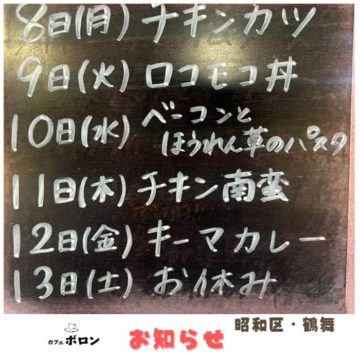 8日(月) チキンカツ
9日(火) ロコモコ丼
10日(水) ベーコンと
ほうれん草のパスタ
11日(木) チキン南蛮
12日(金) キーマカレー
13日(土) お休み
カフェ ボロン
お知らせ
昭和区・鶴舞